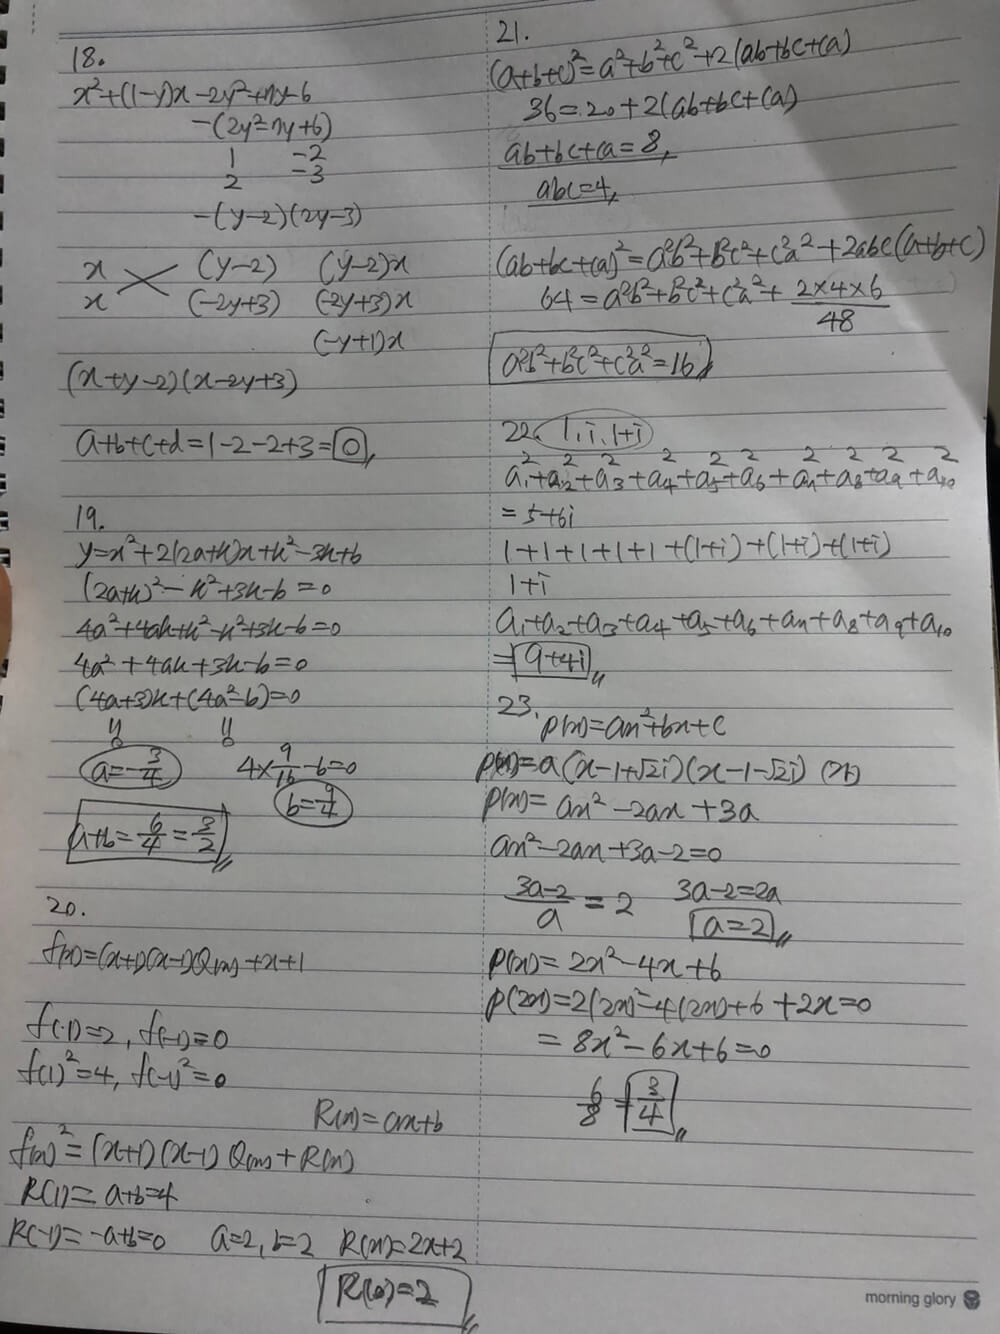 18.
x²+(1-y)x-2y²+7y-6
-(2y²-7y+6)
1 -2
2 -3
-(y-2)(2y-3)
x (y-2) (y-2)x
x (-2y+3) (-2y+3)x
(-y+1)x
(x+y-2)(x-2y+3)
a+b+c+d=1-2-2+3=0
19.
y=x²+2(2a+k)x+k²-3k+b
(2a+k)²-k²+3k-b=0
4a²+4ak+k²-k²+3k-b=0
4a²+4ak+3k-b=0
(4a+3)k+(4a²-b)=0
0 0
a=-3/4 4×9/16-b=0
b=9/4
a+b=6/4=3/2
20.
f(x)=(x+1)(x-1)Q(x)+x+1
f(1)=2, f(-1)=0
f(1)²=4, f(-1)²=0
R(x)=ax+b
f(x)²=(x+1)(x-1)Q(x)+R(x)
R(1)=a+b=4
R(-1)=-a+b=0 a=2, b=2 R(x)=2x+2
R(0)=2
21.
(a+b+c)²=a²+b²+c²+2(ab+bc+ca)
36=20+2(ab+bc+ca)
ab+bc+ca=8
abc=4
(ab+bc+ca)²=a²b²+b²c²+c²a²+2abc(a+b+c)
64=a²b²+b²c²+c²a²+2×4×6
48
a²b²+b²c²+c²a²=16
22. 1, i, 1+i
a₁²+a₂²+a₃²+a₄²+a₅²+a₆²+a₇²+a₈²+a₉²+a₁₀²
=5+6i
1+1+1+1+1+(1+i)+(1+i)+(1+i)
1+i
a₁+a₂+a₃+a₄+a₅+a₆+a₇+a₈+a₉+a₁₀
=9+4i
23.
P(x)=ax²+bx+c
P(x)=a(x-1+√2i)(x-1-√2i)
P(x)=ax²-2ax+3a
ax²-2ax+3a-2=0
3a-2/a=2 3a-2=2a
a=2
P(x)=2x²-4x+6
P(2x)=2(2x)²-4(2x)+6+2x=0
=8x²-6x+6=0
6/8=3/4
morning glory